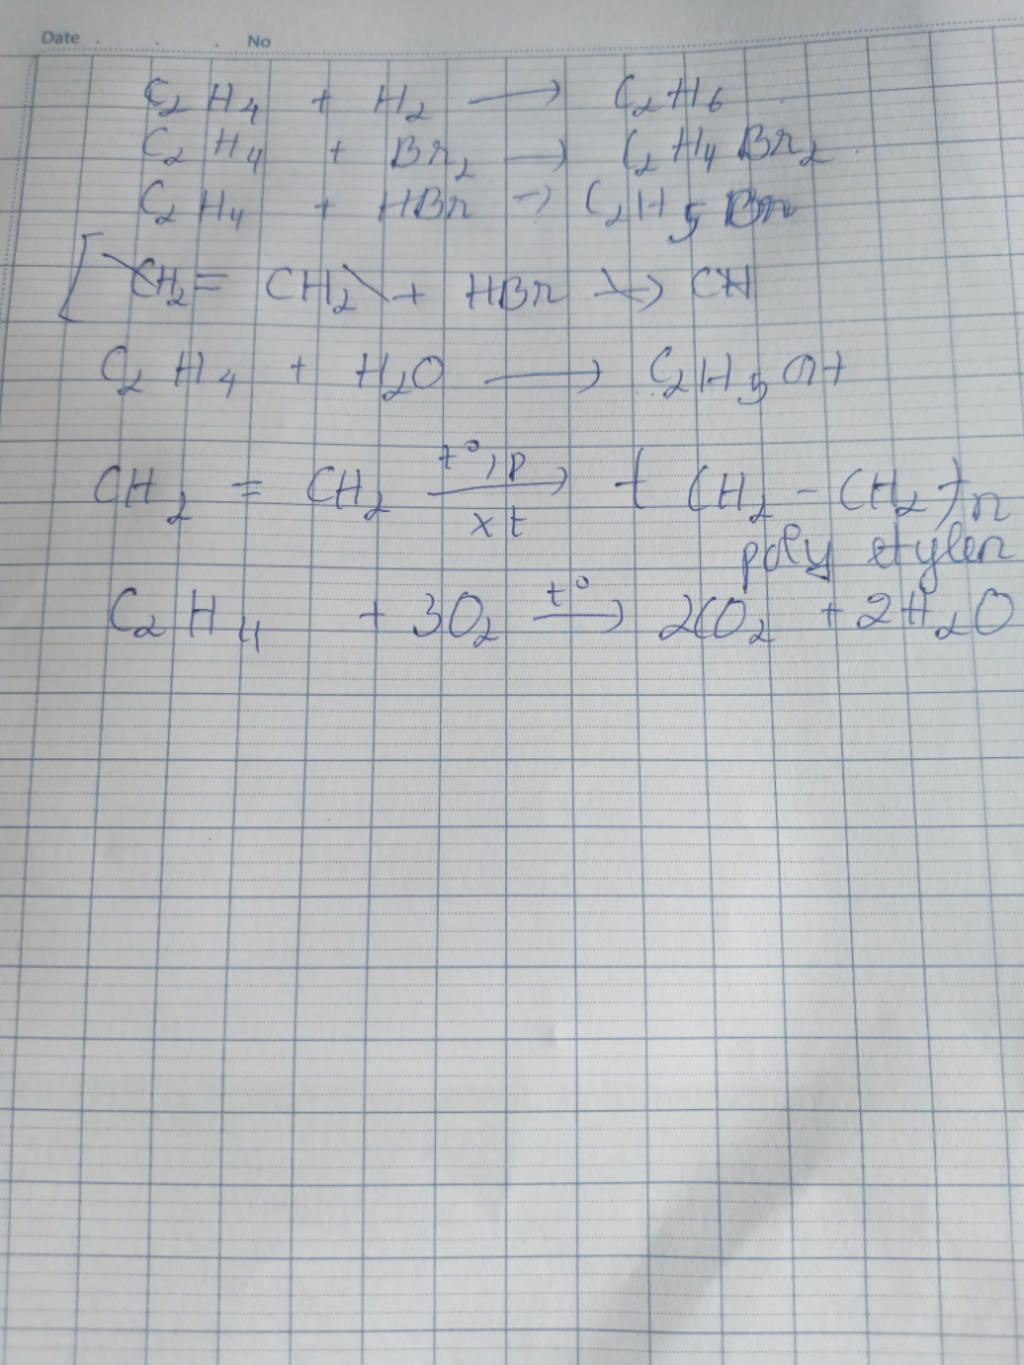 Date . . . No
C₂H₄ + H₂ ⟶ C₂H₆
C₂H₄ + Br₂ ⟶ C₂H₄Br₂
C₂H₄ + HBr → C₂H₅Br
[CH₂ = CH₂ + HBr → CH
C₂H₄ + H₂O ⟶ C₂H₅OH
t°, p
CH₂ = CH₂ ⟶ ( CH₂ - CH₂ )n
xt
poly etylen
t°
C₂H₄ + 3O₂ ⟶ 2CO₂ + 2H₂O